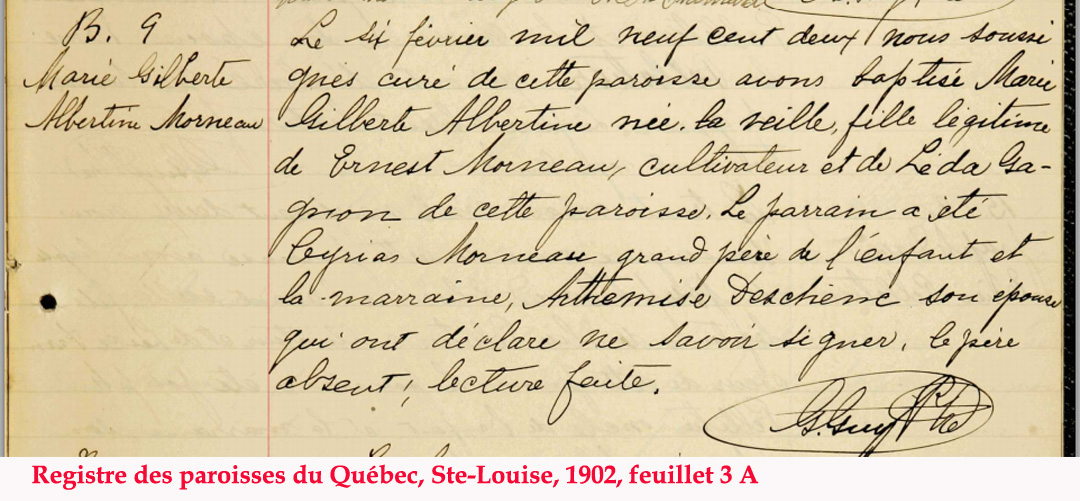 B. 9
Marie Gilberte
Albertine Morneau
Le six février mil neuf cent deux nous soussi
gnés curé de cette paroisse avons baptisé Marie
Gilberte Albertine née la veille, fille légitime
de Ernest Morneau, cultivateur et de Léda Ga-
gnon de cette paroisse. Le parrain a été
Cyrias Morneau grand père de l'enfant et
la marraine, Arthémise Deschêne son épouse
qui ont déclaré ne savoir signer, le père
absent, lecture faite.
G. Guy Ptre
Registre des paroisses du Québec, Ste-Louise, 1902, feuillet 3 A